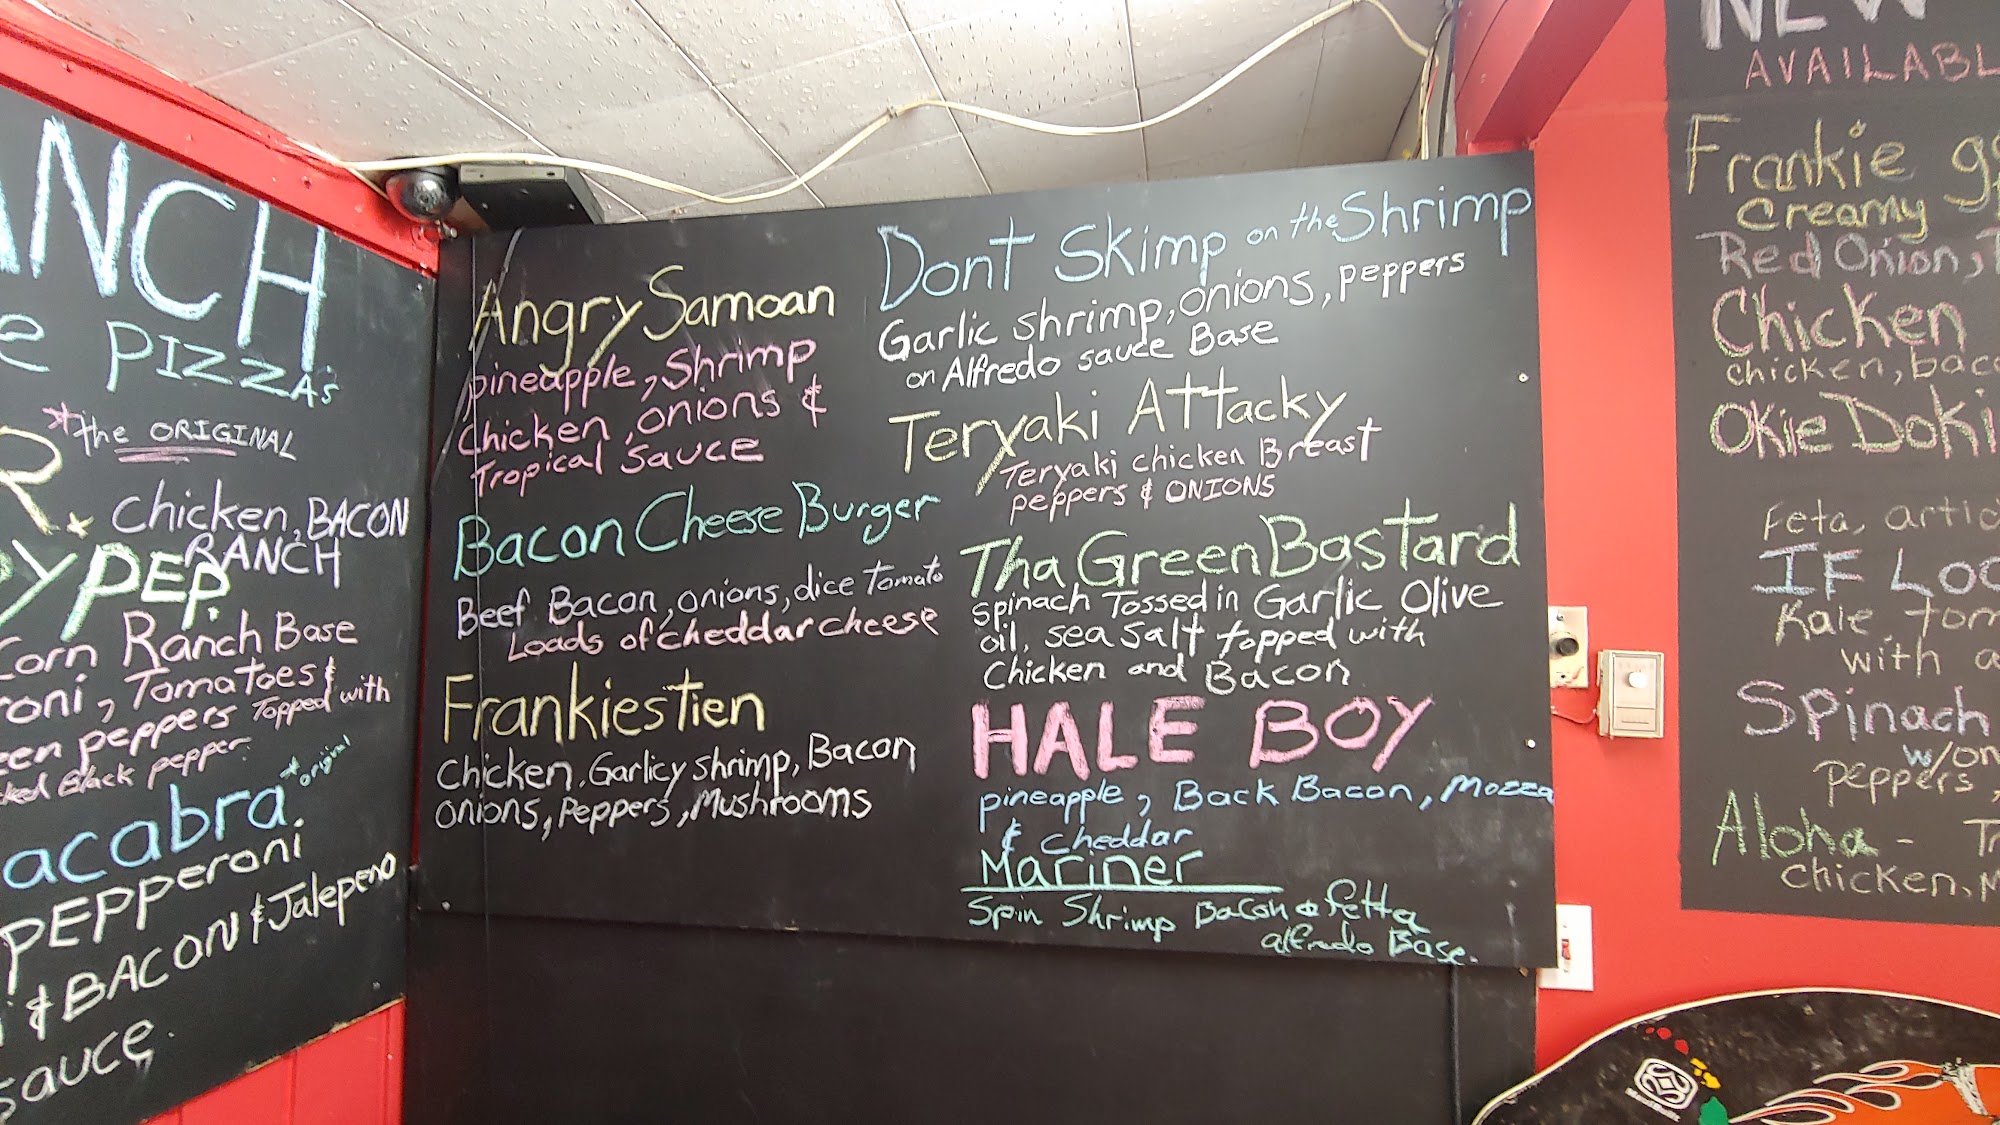 RANCH
PIZZA's
*the ORIGINAL
chicken, BACON
RANCH
PEP.
Corn Ranch Base
Tomatoes &
peppers Topped with
Black pepper.
*original
PEPPERONI
& BACON & Jalepeno
sauce.
Angry Samoan
pineapple, Shrimp
Chicken, onions &
Tropical Sauce
Bacon Cheese Burger
Beef Bacon, onions, dice Tomato
Loads of cheddar cheese
Frankiestien
Chicken, Garlicy shrimp, Bacon
onions, peppers, Mushrooms
Dont Skimp on the Shrimp
Garlic shrimp, onions, peppers
on Alfredo sauce Base
Teryaki Attacky
Teryaki chicken Breast
peppers & ONIONS
Tha Green Bastard
spinach Tossed in Garlic Olive
oil, sea salt topped with
Chicken and Bacon
HALE BOY
pineapple, Back Bacon, Mozza
& cheddar
Mariner
Spin Shrimp Bacon & fetta
alfredo Base.
NEW
Frankie
Creamy
Red Onion,
Chicken
chicken,
Okie Doki
Feta,
IF
Kale
with
Spinach
peppers,
Aloha -
Chicken,